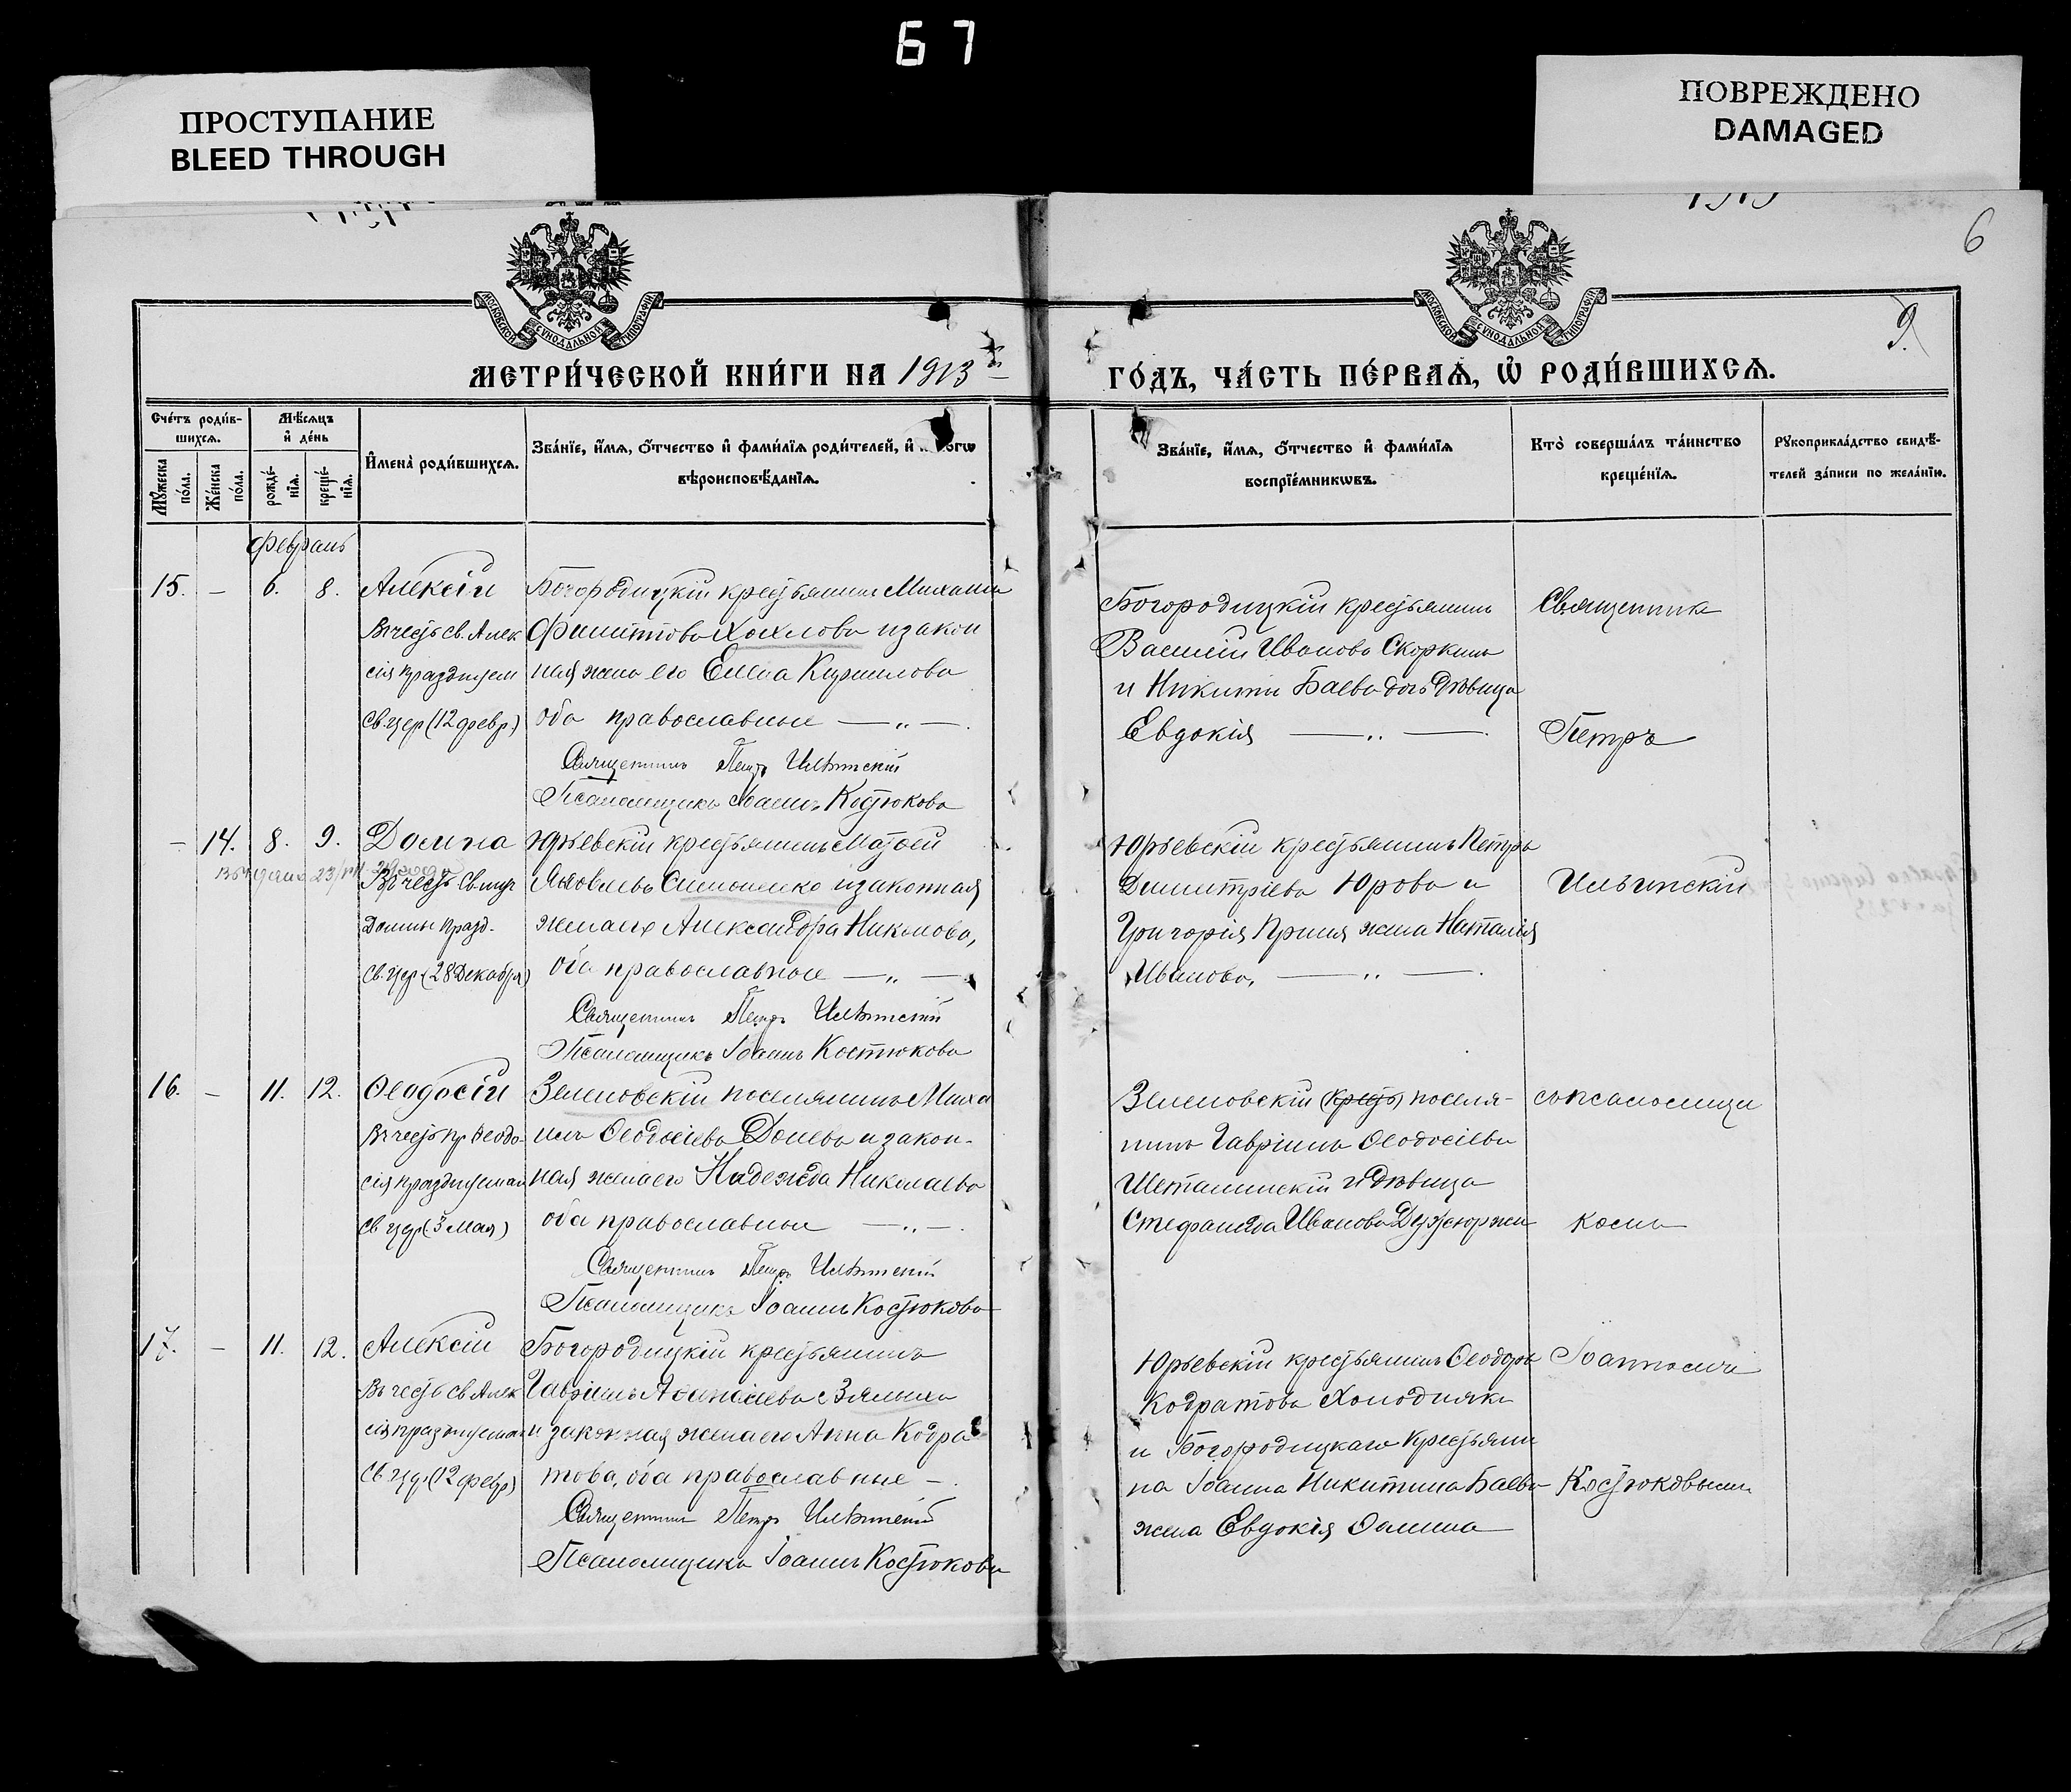 67
ПРОСТУПАНИЕ
BLEED THROUGH
ПОВРЕЖДЕНО
DAMAGED
6
9.
МОСКОВСКОЙ СѴНОДАЛЬНОЙ ТИПОГРАФІИ
МОСКОВСКОЙ СѴНОДАЛЬНОЙ ТИПОГРАФІИ
МЕТРИ́ЧЕСКОЙ КНИ́ГИ НА 1913
ГО́ДЪ, ЧА́СТЬ ПЕ́РВАѦ, Ѡ҆ РОДИ́ВШИХСѦ.
Сче́тъ роди́в-
шихсѧ.
Мѣ́сѧцъ
и҆ де́нь
Мꙋ́жеска по́ла.
Же́нска по́ла.
рожде́-
нїѧ.
креще́-
нїѧ.
И҆мена̀ роди́вшихсѧ.
Зва́нїе, и҆́мѧ, ѻ҆́тчество и҆ фами́лїѧ роди́телей, и҆
вѣроисповѣ́данїѧ.
Зва́нїе, и҆́мѧ, ѻ҆́тчество и҆ фами́лїѧ
воспрїе́мникѡвъ.
Кто̀ соверша́лъ та́инство
креще́нїѧ.
Рꙋкоприкла́дство свидѣ́-
телей за́писи по жела́нїю.
Февраль
15. – 6. 8. Алексій
Въ честь св. Алек
сія празднуем
Св. цер (12 февр.)
Богородицкій крестьянинъ Михаилъ
Филиптовъ Хохловъ и закон
ная жена его Елена Кириллова
оба православные — „ —.
Священникъ Петръ Ильинскій
Псаломщикъ Іоаннъ Костюковъ
Богородицкій крестьянинъ
Василій Ивановъ Скоркинъ
и Никиты Баева дочь дѣвица
Евдокія — „ —.
Священникъ
Петръ
– 14. 8. 9. Домна
Въ честь св. муч
Домны празд.
Св. цер. (28 Декабря)
Юрьевскій крестьянинъ Матѳей
Яковлевъ Симоненко и законная
жена его Александра Николова,
оба православные — „ —
Священникъ Петръ Ильинскій
Псаломщикъ Іоаннъ Костюковъ
Юрьевскій крестьянинъ Петръ
Димитріевъ Юровъ и
Григорія жена Наталія
Иванова, — „ —.
Ильинскій
16. – 11. 12. Ѳеодосій
Въ честь пр Ѳеодо-
сія празднуемаго
Св цер (3 мая)
Зеленовскій поселянинъ Миха
илъ Ѳеодосіевъ Доневъ и закон-
ная жена его Надежда Николаева
оба православные — „ —.
Священникъ Петръ Ильинскій
Псаломщикъ Іоаннъ Костюковъ
Зеленовскій (крест) поселя-
нинъ Гавріилъ Ѳеодосіевъ
и дѣвица
Стефанида Иванова
съ псаломщи
комъ
17. – 11. 12. Алексій
Въ честь св Алек
сія празднуемаго
Св. цер. (12 февр)
Богородицкій крестьянинъ
Гавріилъ Аѳанасіевъ Зялыхъ
и законная жена его Анна Кодра
това, оба православные –.
Священникъ Петръ Ильинскій
Псаломщикъ Іоаннъ Костюковъ
Юрьевскій крестьянинъ Ѳеодоръ
Кодратовъ Холоднякъ
и Богородицкаго крестьяни
на Іоанна Никитина Баева
жена Евдокія Ѳомина
Іоанномъ
Костюковымъ